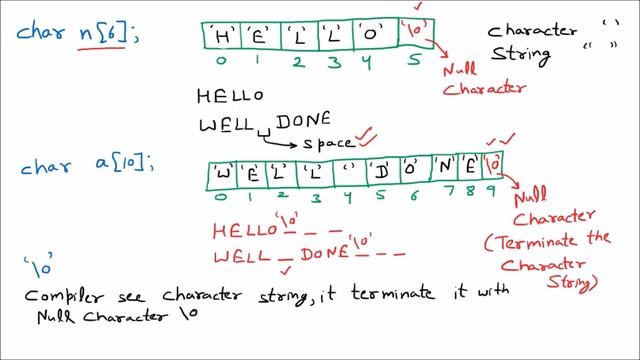 char n[6]; 'H' 'E' 'L' 'L' 'O' '\0'
0 1 2 3 4 5
Null
Character
Character ' '
String " "
HELLO
WELL DONE
space
char a[10]; 'W' 'E' 'L' 'L' ' ' 'D' 'O' 'N' 'E' '\0'
0 1 2 3 4 5 6 7 8 9
Null
Character
(Terminate the
Character
String)
HELLO '\0' _ _ _
WELL _ DONE '\0' _ _ _
'\0'
Compiler see character string, it terminate it with
Null Character \0